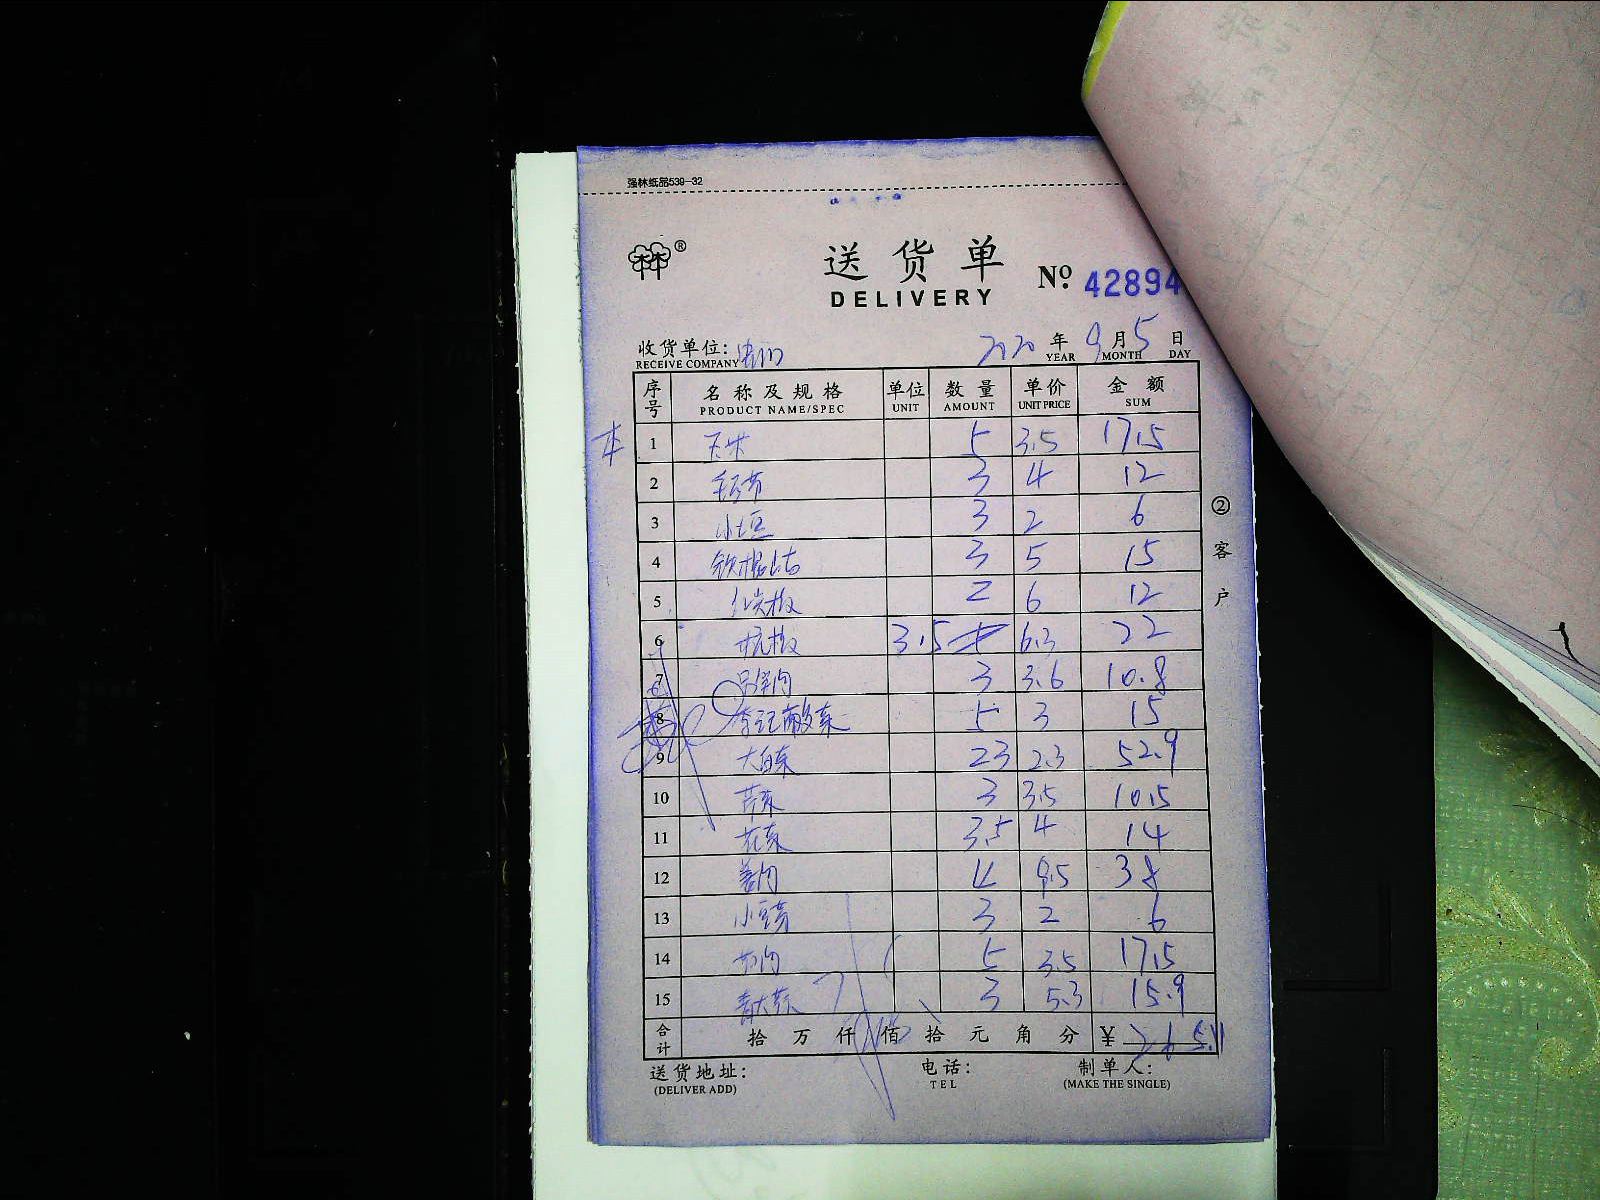 强林纸品539-32
®
送货单
DELIVERY
Nº. 42894
收货单位:
RECEIVE COMPANY
2020年9月5日
YEAR MONTH DAY
序号 名称及规格 单位 数量 单价 金额
PRODUCT NAME/SPEC UNIT AMOUNT UNIT PRICE SUM
1 玉米 5 3.5 17.5
2 3 4 12
3 小土豆 3 2 6
4 铁棍山药 3 5 15
5 红尖椒 2 6 12
6 杭椒 3.5 6.3 22
7 3 3.6 10.8
8 5 3 15
9 大白菜 23 2.3 52.9
10 芹菜 3 3.5 10.5
11 花菜 3.5 4 14
12 姜肉 4 9.5 38
13 小豆芽 3 2 6
14 5 3.5 17.5
15 3 5.3 15.9
合计 拾万仟佰拾元角分 ¥ 265.11
② 客户
送货地址: 电话: 制单人:
(DELIVER ADD) TEL (MAKE THE SINGLE)